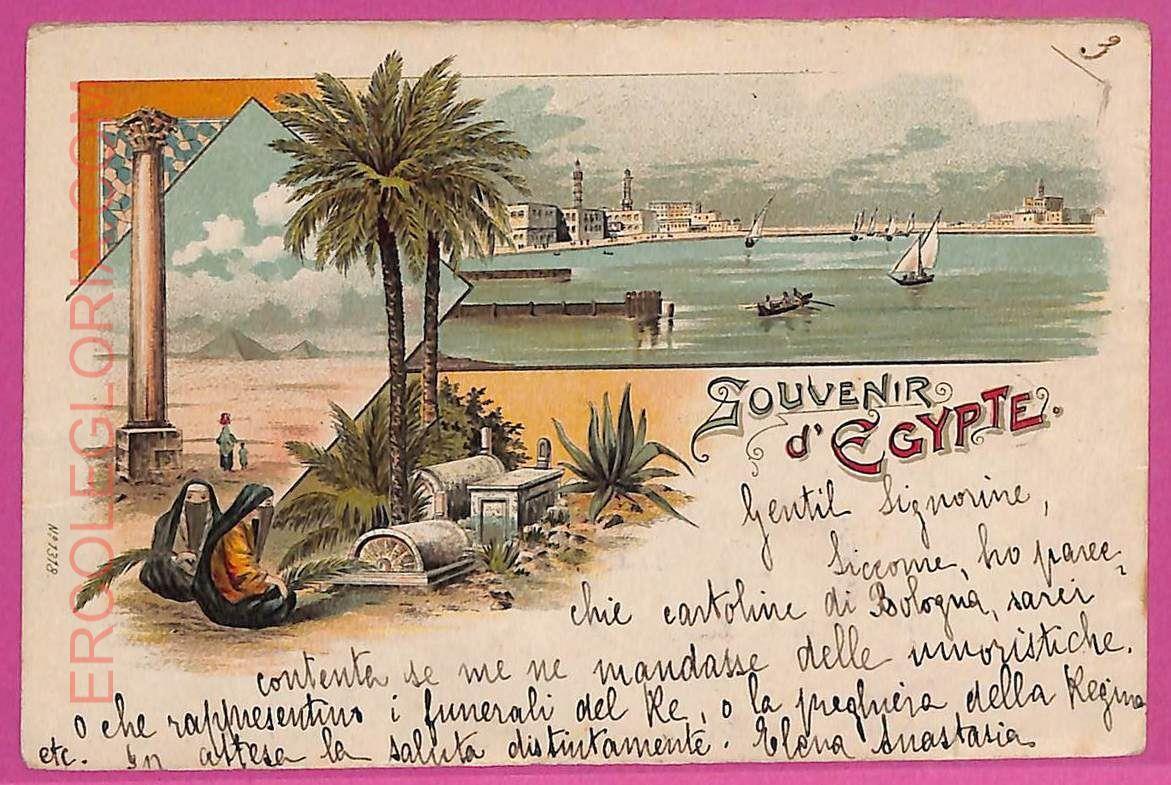 3
EROCOLEGLORIA.COM
SOUVENIR
d'EGYPTE.
Nº 7378
Gentil Signorine,
Siccome, ho parec-
chie cartoline di Bologna, sarei
contenta se me ne mandasse delle umoristiche,
o che rappresentino i funerali del Re, o la preghiera della Regina
etc. In attesa la saluta distintamente. Elena Anastasia